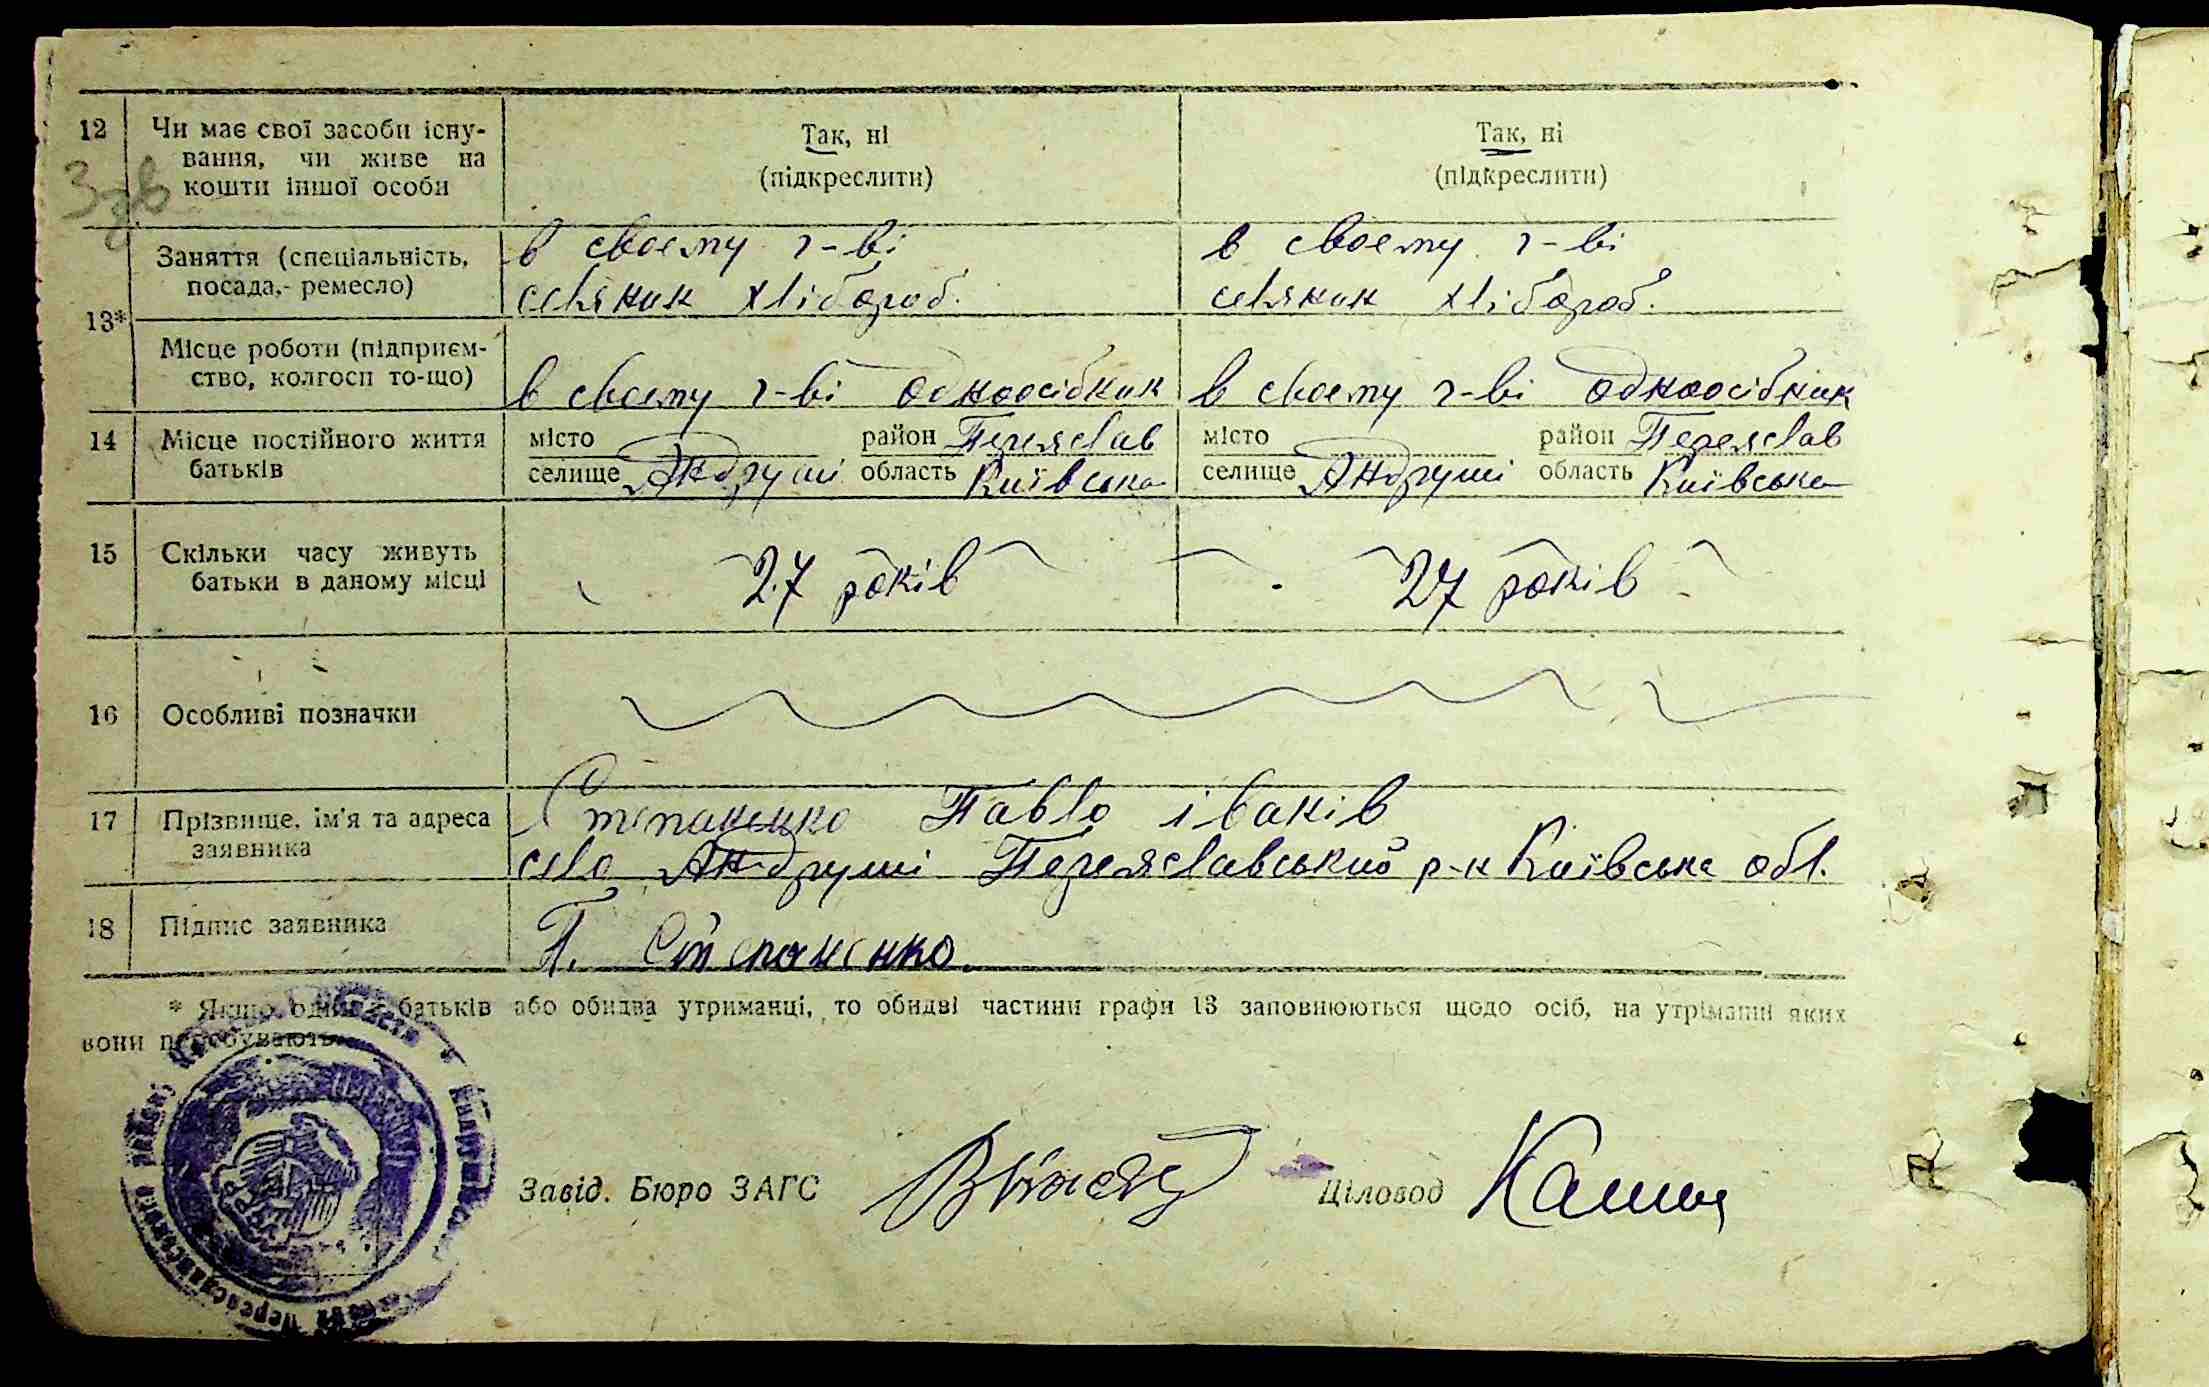 12 Чи має свої засоби існу-
вання, чи живе на
кошти іншої особи
Так, ні
(підкреслити)
Так, ні
(підкреслити)
13*
Заняття (спеціальність,
посада,- ремесло)
в своему г-ві
селяник хлібороб.
в своему г-ві
селяник хлібороб.
Місце роботи (підприєм-
ство, колгосп то-що)
в своему г-ві одноосібник
в своему г-ві одноосібник
14 Місце постійного життя
батьків
місто район Переяслав
селище Андруші область Київська
місто район Переяслав
селище Андруші область Київська
15 Скільки часу живуть
батьки в даному місці
27 років
27 років
16 Особливі позначки
17 Прізвище, ім'я та адреса
заявника
Степаненко Павло іванів
село Андруші Переяславський р-н Київська обл.
18 Підпис заявника
П. Степаненко.
* Якщо один з батьків або обидва утриманці, то обидві частини графи 13 заповнюються щодо осіб, на утріманні яких
вони перебувають.
Завід. Бюро ЗАГС
Діловод